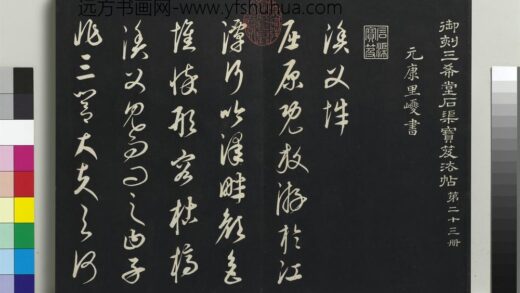 远方书画网- www.yfshuhua
御刻三希堂石渠寶笈法帖 第二十三冊
元康里巎書
石渠寶笈
漁父辭
屈原既放游於江
潭行吟澤畔顏色
憔悴形容枯槁
漁父見而問之曰子
非三閭大夫與何